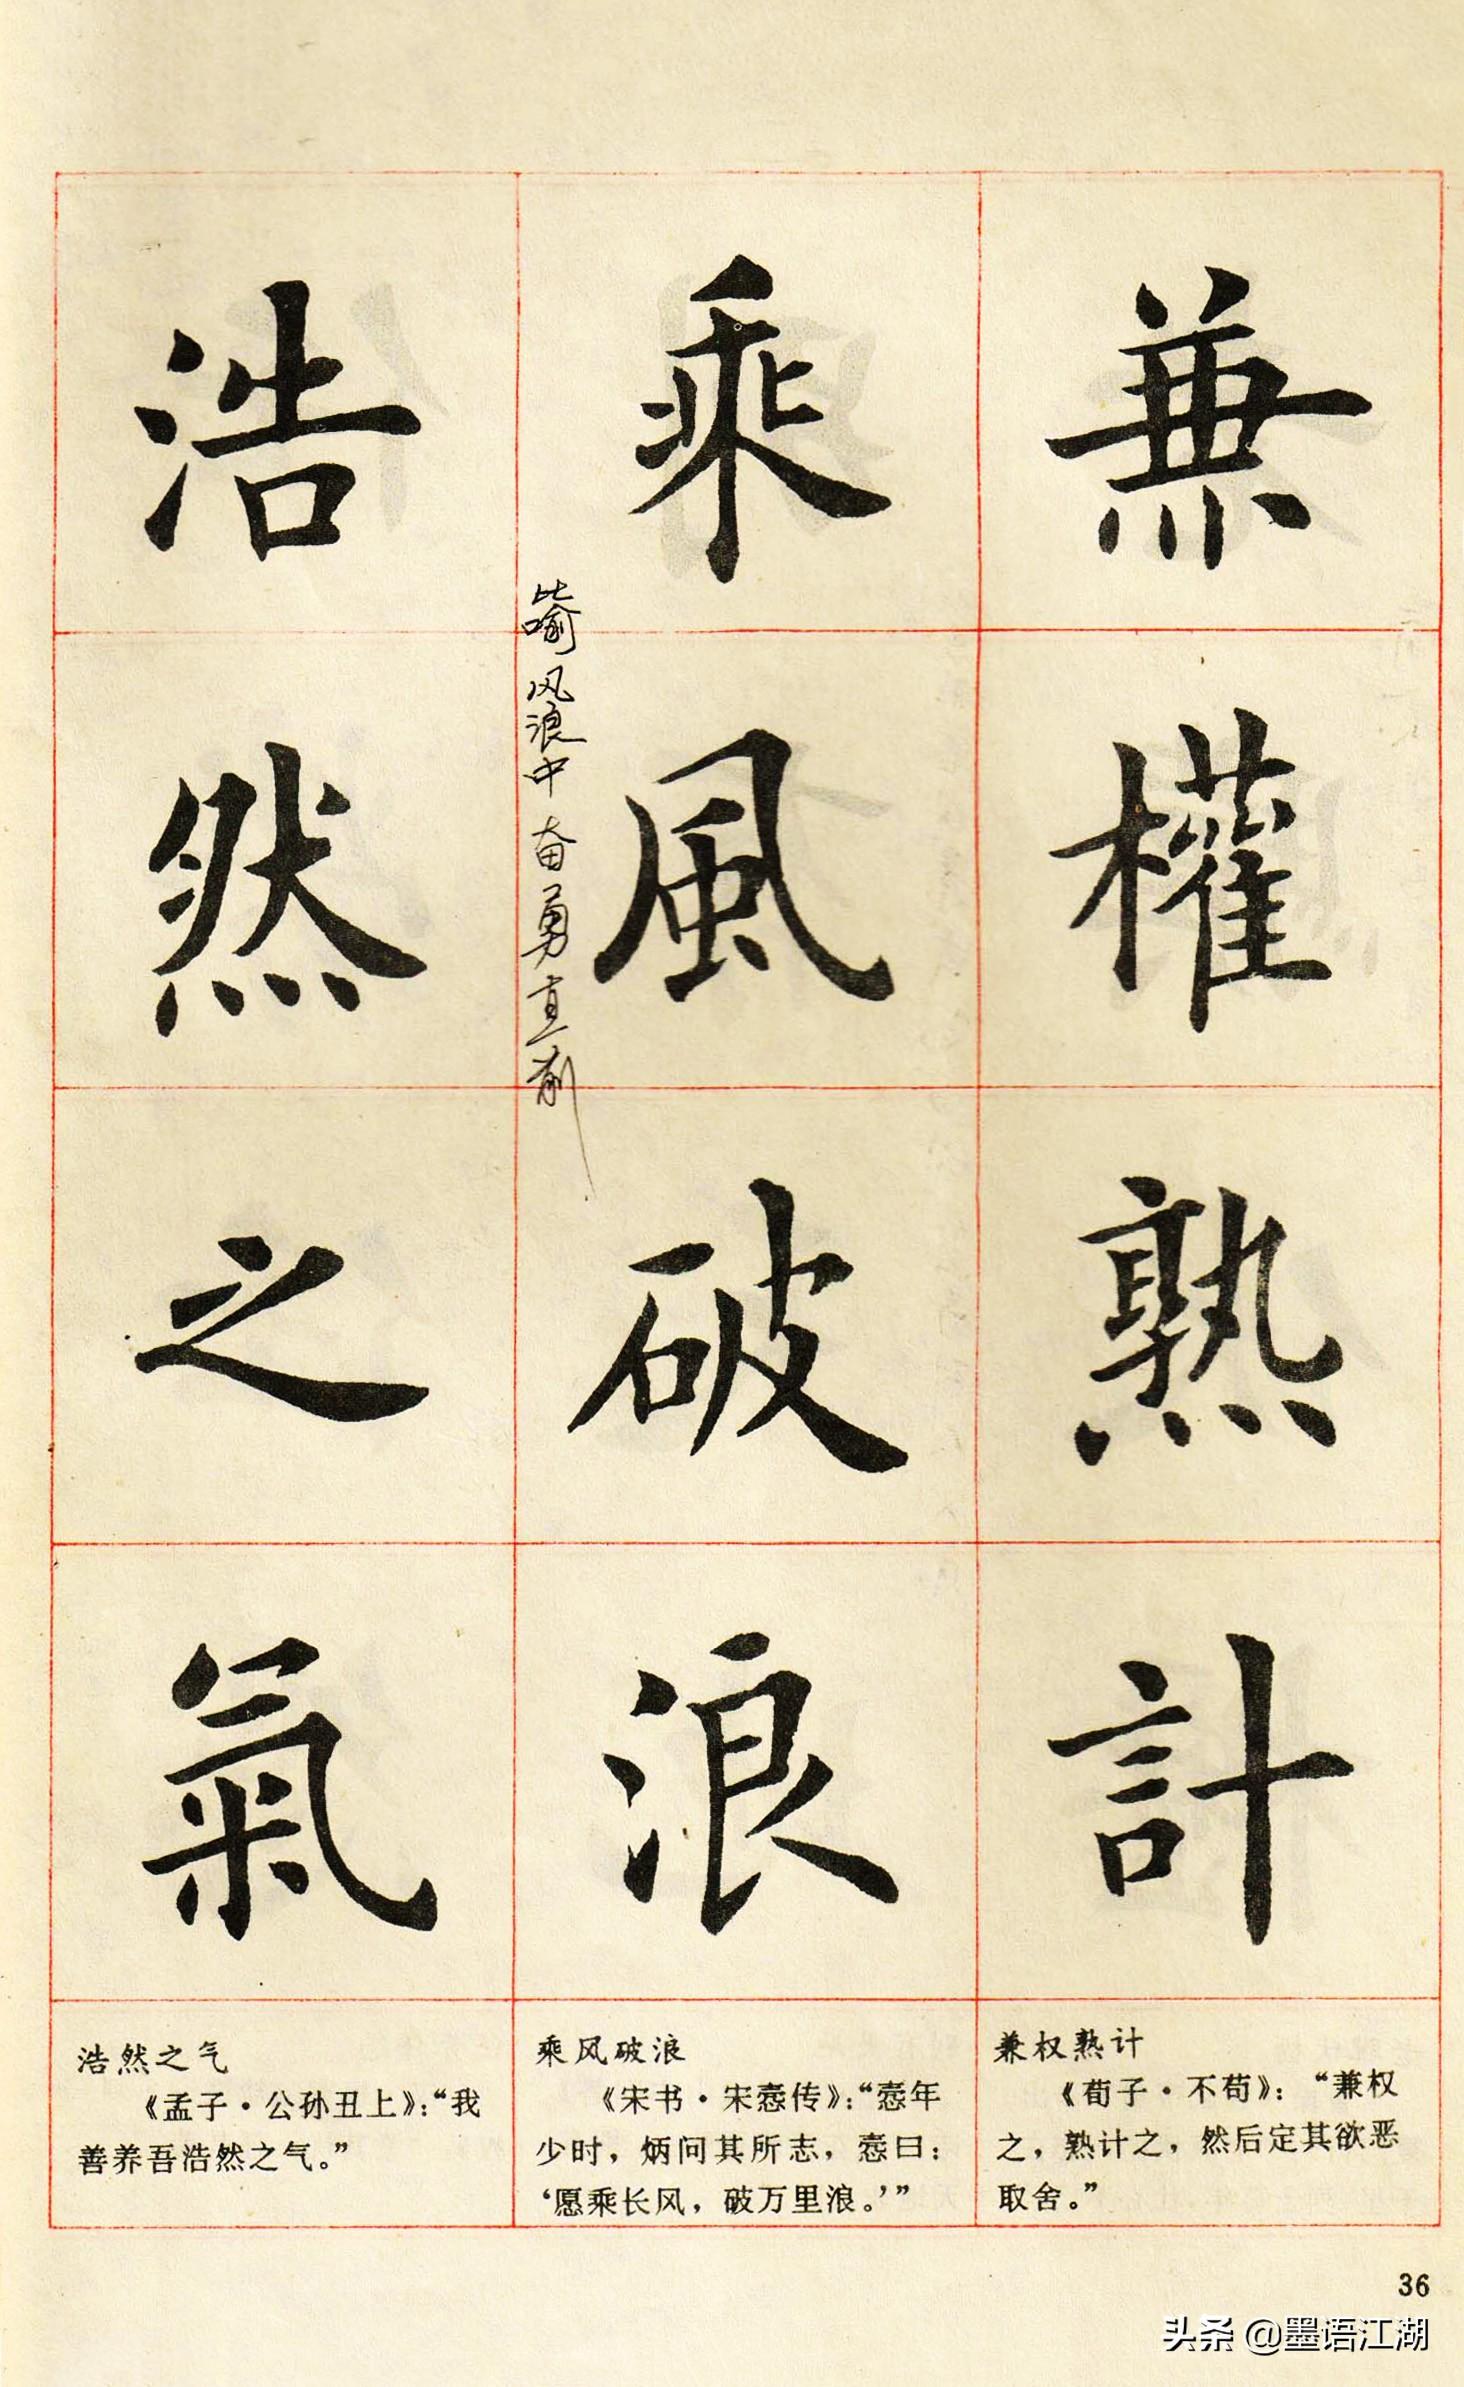 兼權熟計
乘風破浪
浩然之氣
比喻风浪中奋勇直前
兼权熟计
《荀子·不苟》：“兼权
之，熟计之，然后定其欲恶
取舍。”
乘风破浪
《宋书·宋悫传》：“悫年
少时，炳问其所志，悫曰：
‘愿乘长风，破万里浪。’”
浩然之气
《孟子·公孙丑上》：“我
善养吾浩然之气。”
36
头条 @墨语江湖